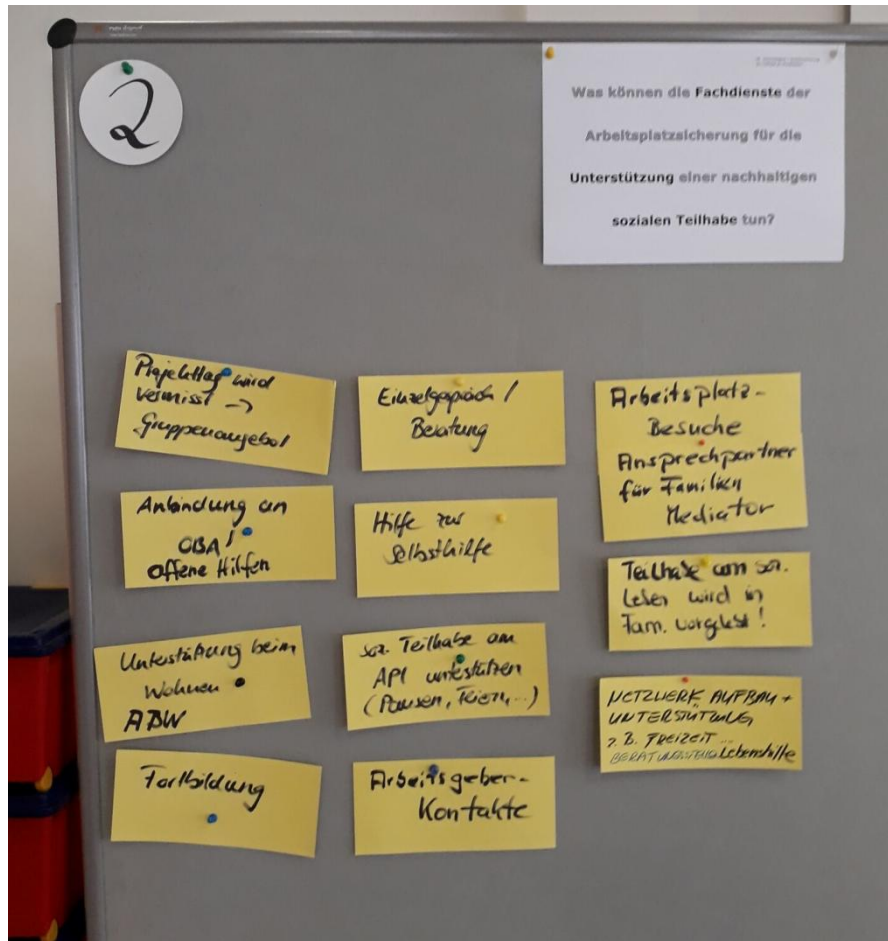 2
Was können die Fachdienste der
Arbeitsplatzsicherung für die
Unterstützung einer nachhaltigen
sozialen Teilhabe tun?
Projekttag wird
vermisst →
Gruppenangebot
Anbindung an
OBA /
Offene Hilfen
Unterstützung beim
Wohnen
ABW
Fortbildung
Einzelgespräch /
Beratung
Hilfe zur
Selbsthilfe
soz. Teilhabe am
APl unterstützen
(Pausen, Feiern,...)
Arbeitsgeber-
Kontakte
Arbeitsplatz-
Besuche
Ansprechpartner
für Familien
Mediator
Teilhabe am soz.
Leben wird in
Fam. vorgelebt!
NETZWERK AUFBAU +
UNTERSTÜTZUNG
z.B. FREIZEIT...
Lebenshilfe